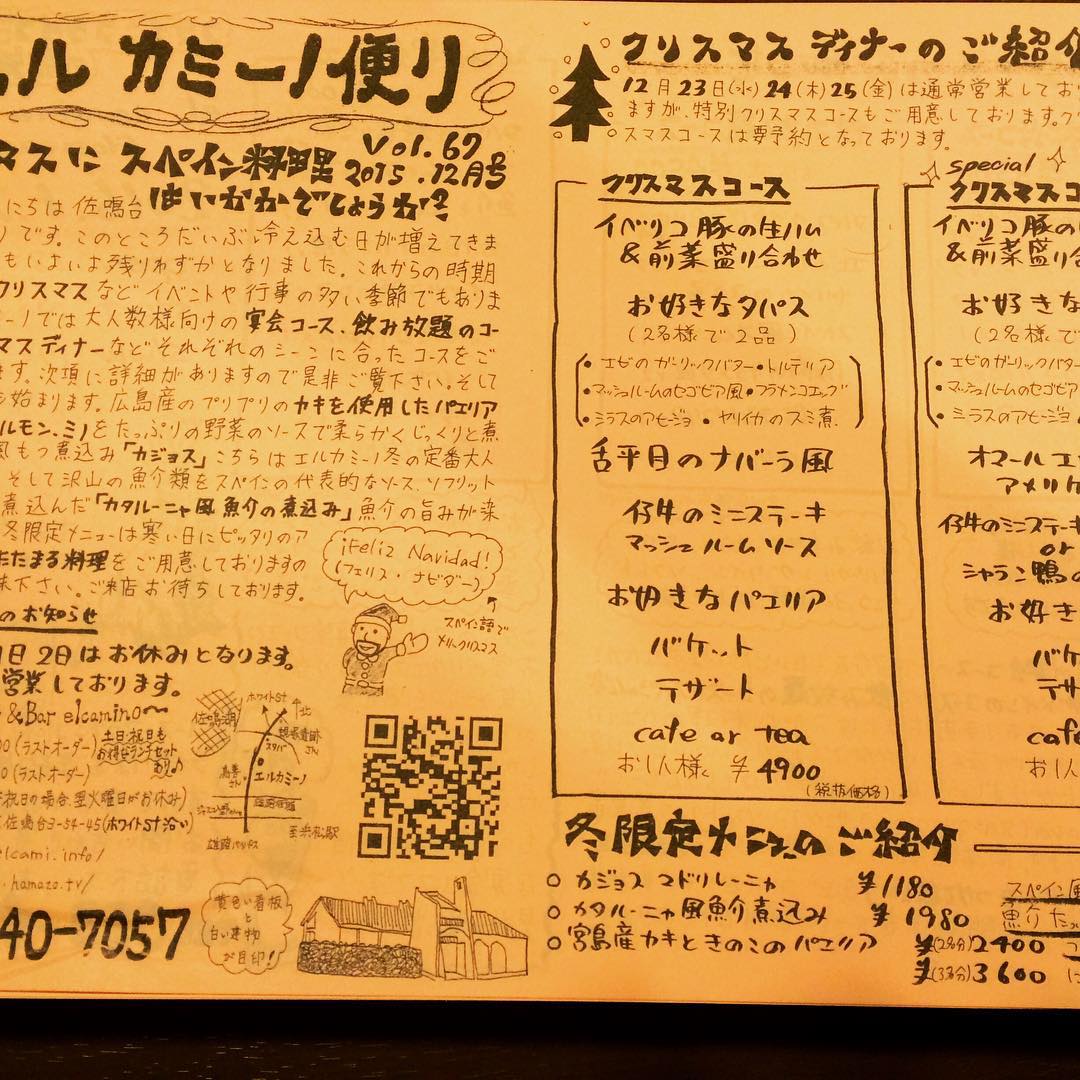 エル カミーノ便り
Vol.67
マスに スペイン料理
2015.12月号
はいかがでしょうか?
にちは 佐鳴台
りです。このところだいぶ冷え込む日が増えてきま
もいよいよ残りわずかとなりました。これからの時期
クリスマスなどイベントや行事の多い季節でもありま
ーノでは大人数様向けの宴会コース、飲み放題のコー
マスディナーなどそれぞれのシーンに合ったコースをご
ます。次項に詳細がありますので是非ご覧下さい。そして
始まります。広島産のプリプリのカキを使用したパエリア
ルモン、ミノをたっぷりの野菜のソースで柔らかくじっくりと煮
風もつ煮込み「カジョス」こちらはエルカミーノ冬の定番大人
そして沢山の魚介類をスペインの代表的なソース、ソフリット
煮込んだ「カタルーニャ風魚介の煮込み」魚介の旨みが染
冬限定メニューは寒い日にピッタリのア
たたまる料理をご用意しておりますの
味下さい。ご来店お待ちしております。
¡Feliz Navidad!
(フェリス・ナビダー)
スペイン語で
メリークリスマス
のお知らせ
1日 2日はお休みとなります。
営業しております。
&Bar elcamino〜
00(ラストオーダー)
土日祝日も
お得なランチセット
あり♪
0(ラストオーダー)
祝日の場合、翌火曜日がお休み)
佐鳴台3-54-45(ホワイトSt沿い)
elcami.info/
.hamazo.tv/
40-7057
佐鳴湖
ホワイトSt
スタバ
エルカミーノ
至浜松駅
雄踏バイパス
黄色い看板
と
白い建物
が目印!
クリスマス ディナーのご紹介
12月23日(水)24(木)25(金)は通常営業してお
ますが、特別クリスマスコースもご用意しております。ク
スマスコースは要予約となっております。
クリスマスコース
イベリコ豚の生ハム
&前菜盛り合わせ
お好きなタパス
(2名様で2品)
・エビのガーリックバター・トルティリア
・マッシュルームのセゴビア風・フラメンコエッグ
・シラスのアヒージョ・ヤリイカのスミ煮
舌平目のナバーラ風
仔牛のミニステーキ
マッシュルームソース
お好きなパエリア
バケット
デザート
cafe or tea
お1人様 ¥4900
(税抜価格)
special
クリスマスコ
イベリコ豚の
&前菜盛り合
お好きな
(2名様で
・エビのガーリックバター
・マッシュルームのセゴビア
・シラスのアヒージョ
オマールエ
アメリケ
仔牛のミニステーキ
or
シャラン鴨の
お好き
バケ
デザ
cafe
お1人
冬限定メニューのご紹介
○ カジョス マドリレーニャ ¥1180
○ カタルーニャ風魚介煮込み ¥1980
○ 宮島産カキときのこのパエリア ¥(2名分)2400
¥(3名分)3600
スペイン風
魚介たっ